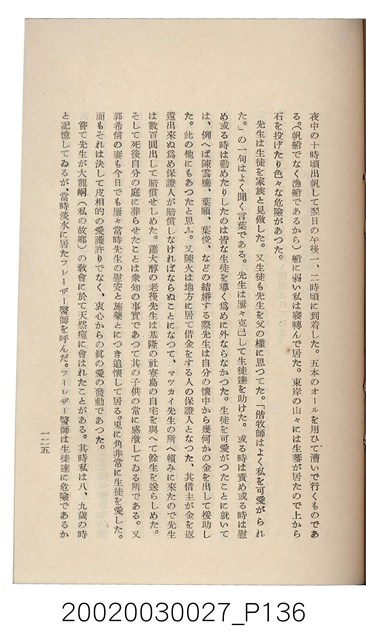 夜中の十時頃出帆して翌日の午後一、二時頃に到着した。五本のオールを用ひて漕いで行くものであ
る。（帆船でなく漁船であるから）船に弱い私は寝轉んで居た。東岸の山々には生蕃が居たので上から
石を投げたり色々な危險があつた。
先生は生徒を家族と見做した。又生徒も先生を父の樣に思つてた。「偕牧師はよく私を可愛がられ
た。」の一句はよく聞く言葉である。先生は屢々克己して生徒達を助けた。或る時は責め或る時は慰
め或る時は勸めたりしたのは皆な生徒を導く爲めに外ならなかつた。生徒を可愛がつたことに就いて
は、例へば陳雲騰、葉順、葉俊、などの結婚する際先生は自分の懷中から幾何かの金を出して援助し
た。此の他にもあつたと思ふ。又陳火は地方に居て借金をする人の保證人となつた、其借主が金を返
還出來ぬ爲め保證人が賠償しなければならぬことになつて、マツカイ先生の所へ賴みに來たので先生
は數百圓出して賠償せしめた。蕭大醇の老後先生は基隆の社寮島の自宅を與へて餘生を送らしめた。
そして死後自分の庭に葬らせたことは衆知の事實であつて其の子供の常に感激してゐる所である。又
郭希信の妻も今日でも屢々當時先生の慰安と施藥とにつき追懷して居る。兎に角非常に生徒を愛した。
而もそれは決して皮相的の愛護許りでなく、衷心からの眞の愛の發動であつた。
嘗て先生が大龍峒（私の故鄕）の敎會に於て天然痘に會はれたことがある。其時私は八、九歲の時
と記憶してゐるが、當時淡水に居たフレーザー醫師を呼んだ。フレーザー醫師は生徒達に危險であるか
一二五
20020030027_P136